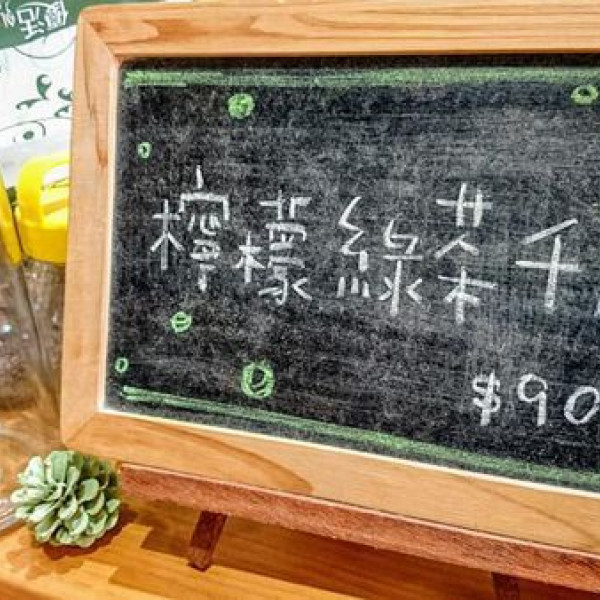 檸檬綠茶千
$90